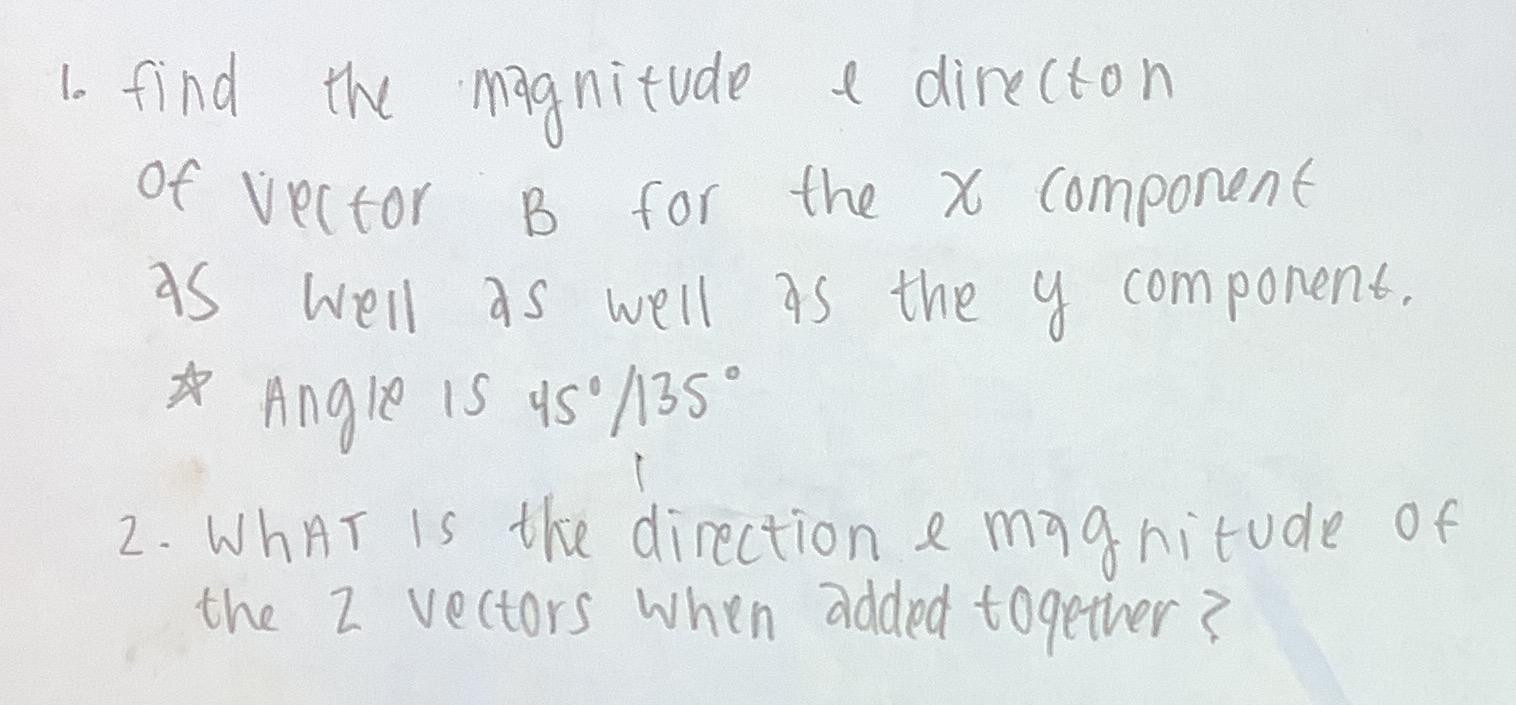 1. find the magnitude & directon
of vector B for the x component
as well as well as the y component.
☆ Angle is 45°/135°
2. What is the direction & magnitude of
the 2 vectors when added together?